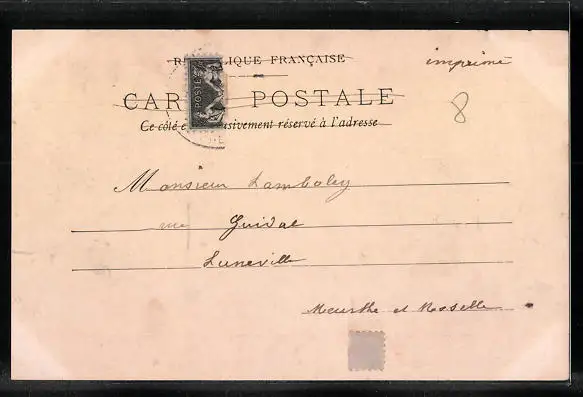 RÉPUBLIQUE FRANÇAISE
imprimé
CARTE POSTALE
8
Ce côté exclusivement réservé à l'adresse
POSTE
Monsieur Lamboley
rue Guidal
Luneville
Meurthe et Moselle